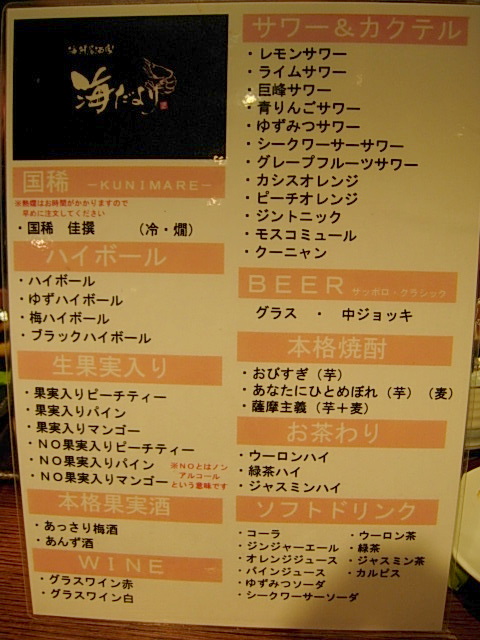 海鮮居酒屋
海だより
国稀 －KUNIMARE－
※熱燗はお時間がかかりますので
早めに注文してください
・国稀 佳撰 （冷・燗）
ハイボール
・ハイボール
・ゆずハイボール
・梅ハイボール
・ブラックハイボール
生果実入り
・果実入りピーチティー
・果実入りパイン
・果実入りマンゴー
・ＮＯ果実入りピーチティー
・ＮＯ果実入りパイン
・ＮＯ果実入りマンゴー
※ＮＯとはノン
アルコール
という意味です
本格果実酒
・あっさり梅酒
・あんず酒
ＷＩＮＥ
・グラスワイン赤
・グラスワイン白
サワー＆カクテル
・レモンサワー
・ライムサワー
・巨峰サワー
・青りんごサワー
・ゆずみつサワー
・シークワーサーサワー
・グレープフルーツサワー
・カシスオレンジ
・ピーチオレンジ
・ジントニック
・モスコミュール
・クーニャン
ＢＥＥＲ サッポロ・クラシック
グラス ・ 中ジョッキ
本格焼酎
・おびすぎ（芋）
・あなたにひとめぼれ（芋）（麦）
・薩摩主義（芋＋麦）
お茶わり
・ウーロンハイ
・緑茶ハイ
・ジャスミンハイ
ソフトドリンク
・コーラ
・ジンジャーエール
・オレンジジュース
・パインジュース
・ゆずみつソーダ
・シークワーサーソーダ
・ウーロン茶
・緑茶
・ジャスミン茶
・カルピス